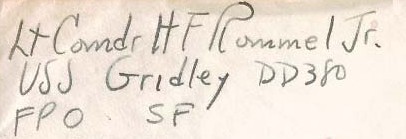 Lt Comdr H F Rommel Jr.
USS Gridley DD380
FPO SF